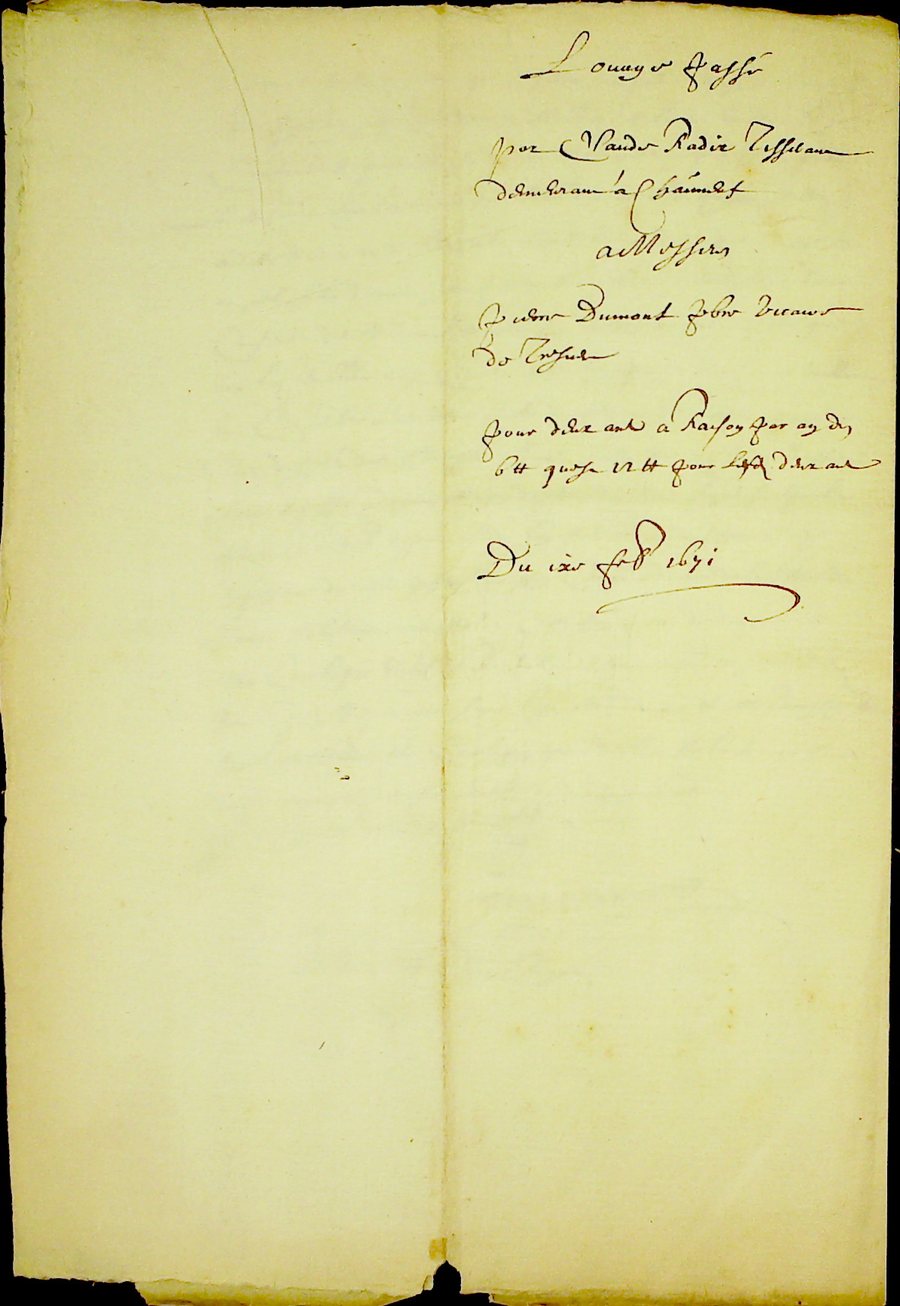 Louage passé
par Claude Radix Tisseran
demeurant à
a Messire
Pierre Dumont pbre vicaire
de
pour deux ans à Raison par an de
6 tt qui est 12 tt pour lesd deux ans
Du ixe feb 1671